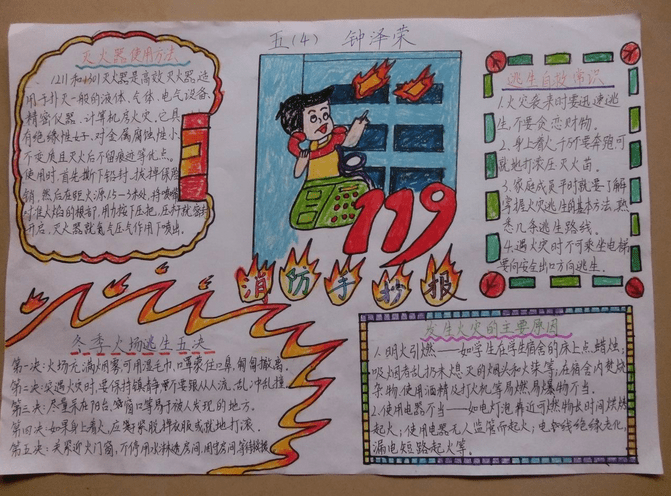 五(4) 钟泽荣
灭火器使用方法
1211和1301灭火器是高效灭火器,适
用于扑灭一般的液体、气体、电气设备、
精密仪器、计算机房火灾,它具
有绝缘性好,对金属腐蚀性小,
不变质且灭火后不留痕迹等优点。
使用时首先撕下铅封,拔掉保险
销,然后在距火源1.5-3米处,将喷嘴
对准火焰的根部,用力按下压把,压杆就
开启,灭火器就氮气压气作用下喷出。
119
消防手抄报
逃生自救常识
1.火灾袭来时要迅速逃
生,不要贪恋财物。
2.身上着火,千万不要奔跑可
就地打滚压灭火苗。
3.家庭成员平时就要了解
掌握火灾逃生的基本方法,熟
悉几条逃生路线。
4.遇火灾时不可乘坐电梯
要向安全出口方向逃生。
冬季火场逃生五决
第一决:火场充满烟雾,可用湿毛巾、口罩蒙住口鼻,匍匐撤离。
第二决:突遇火灾时,要保持镇静,不要跟从人流、乱冲乱撞。
第三决:尽量呆在阳台、窗口等易于被人发现的地方。
第四决:如果身上着火,应赶紧脱掉衣服或就地打滚。
第五决:关紧近火门窗,不停用水淋透房间,固守房间等待救援。
发生火灾的主要原因
1.明火引燃——如学生在学生宿舍的床上点蜡烛;
吸烟者乱扔未熄灭的烟头和火柴等,在宿舍内焚烧
杂物,使用酒精及打火机等易燃易爆物不当。
2.使用电器不当——如电灯泡靠近可燃物长时间烘烤
起火;使用电器无人监管而起火;电路线绝缘老化,
漏电短路起火等。